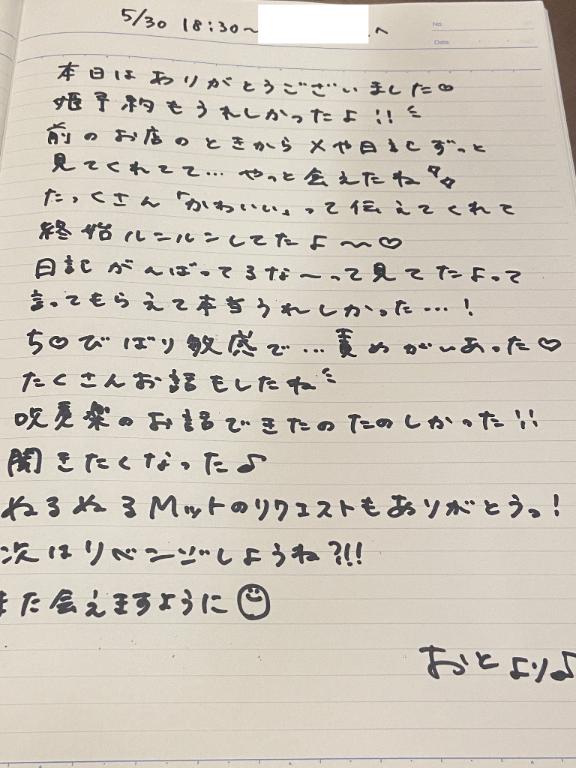 5/30 18:30〜 へ
No.
Date
本日はありがとうございました♡
姫予約もうれしかったよ!!
前のお店のときからメや日記ずっと
見てくれてて…やっと会えたね
たっくさん「かわいい」って伝えてくれて
終始ルンルンしてたよ〜♡
日記がんばってるな〜って見てたよって
言ってもらえて本当うれしかった…!
ち♡びばり敏感で…責めがいあった♡
たくさんお話もしたね
吹奏楽のお話できたのたのしかった!!
聞きたくなった♪
ねるねるMットのリクエストもありがとうっ!
次はリベンジしようね?!!!
また会えますように
おとより♪